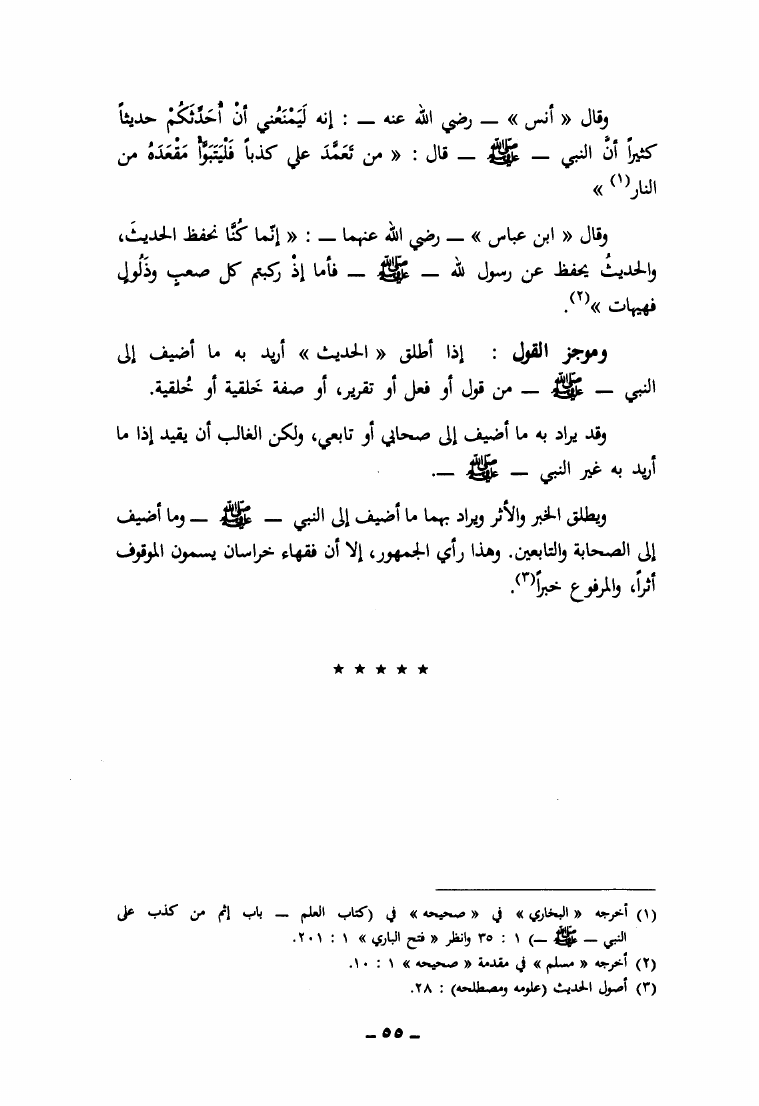 وقال « أنس » — رضي الله عنه — : إنه لَيَمْنَعُني أنْ أُحَدِّثَكُمْ حديثاً
كثيراً أنَّ النبي — ﷺ — قال : « من تَعَمَّدَ علي كذباً فَلْيَتَبَوَّأْ مَقْعَدَهُ من
النار(١) »
وقال « ابن عباس » — رضي الله عنهما — : « إنّما كُنَّا نحفظ الحديثَ،
والحديثُ يحفظ عن رسول لله — ﷺ — فأما إذْ ركبتم كل صعبٍ وذَلُولٍ
فهيهات »(٢).
وموجز القول : إذا أطلق « الحديث » أريد به ما أضيف إلى
النبي — ﷺ — من قول أو فعل أو تقرير، أو صفة خَلقية أو خُلقية.
وقد يراد به ما أضيف إلى صحابي أو تابعي، ولكن الغالب أن يقيد إذا ما
أريد به غير النبي — ﷺ —.
ويطلق الخبر والأثر ويراد بهما ما أضيف إلى النبي — ﷺ — وما أضيف
إلى الصحابة والتابعين. وهذا رأي الجمهور، إلا أن فقهاء خراسان يسمون الموقوف
أثراً، والمرفوع خبراً(٣).
★ ★ ★ ★ ★
(١) أخرجه « البخاري » في « صحيحه » في (كتاب العلم — باب إثم من كذب على
النبي — ﷺ —) ١ : ٣٥ وانظر « فتح الباري » ١ : ٢٠١.
(٢) أخرجه « مسلم » في مقدمة « صحيحه » ١ : ١٠.
(٣) أصول الحديث (علومه ومصطلحه) : ٢٨.
— ٥٥ —